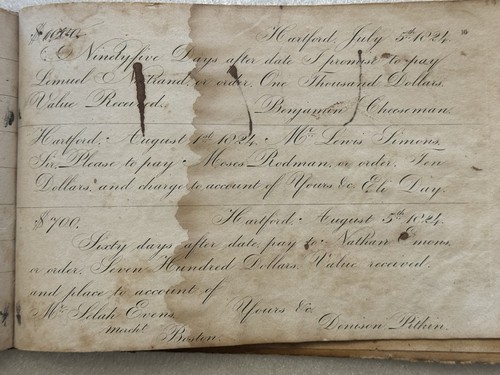 Hartford, July 5th 1824.
Ninetyfive Days after date I promise to pay
Lemuel or order, One Thousand Dollars.
Value Received. Benjamin Cheeseman.
Hartford. August 1st 1824. Mr. Lewis Simons,
Sir, Please to pay Moses Rodman, or order, Ten
Dollars, and charge to account of Yours &c. Eli Day.
$700. Hartford. August 5th 1824.
Sixty days after date, pay to Nathan Emons,
or order, Seven Hundred Dollars, Value received,
and place to account of
Yours &c.
Mr. Selah Evens, Denison Pitkin.
Mercht.
Boston.